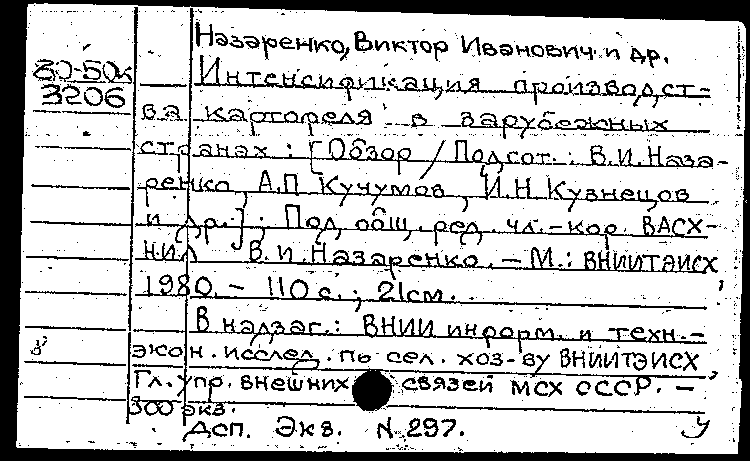 Назаренко, Виктор Иванович и др.
80-50к
3206
Интенсификация производст-
ва картофеля в зарубежных
странах : [Обзор / Подгот. : В.И.Наза-
ренко, А.П. Кучумов, И.Н. Кузнецов
и др.] ; Под общ. ред. чл.-кор. ВАСХ-
НИЛ В.И.Назаренко. – М.: ВНИИТЭИСХ,
1980. – 110 с. ; 21 см.
В надзаг.: ВНИИ информ. и техн.-
экон. исслед. по сел. хоз-ву ВНИИТЭИСХ,
Гл. упр. внешних связей МСХ СССР. –
300 экз.
ДСП. Экз. N 297.